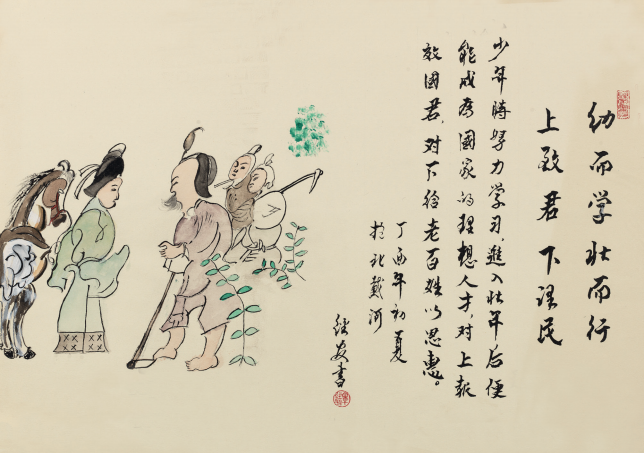 幼而学壮而行
上致君下泽民
少年時努力学习進入壮年后便
能成為國家的理想人才,对上報
效國君,对下给老百姓以恩惠。
丁酉年初夏
於北戴河
書